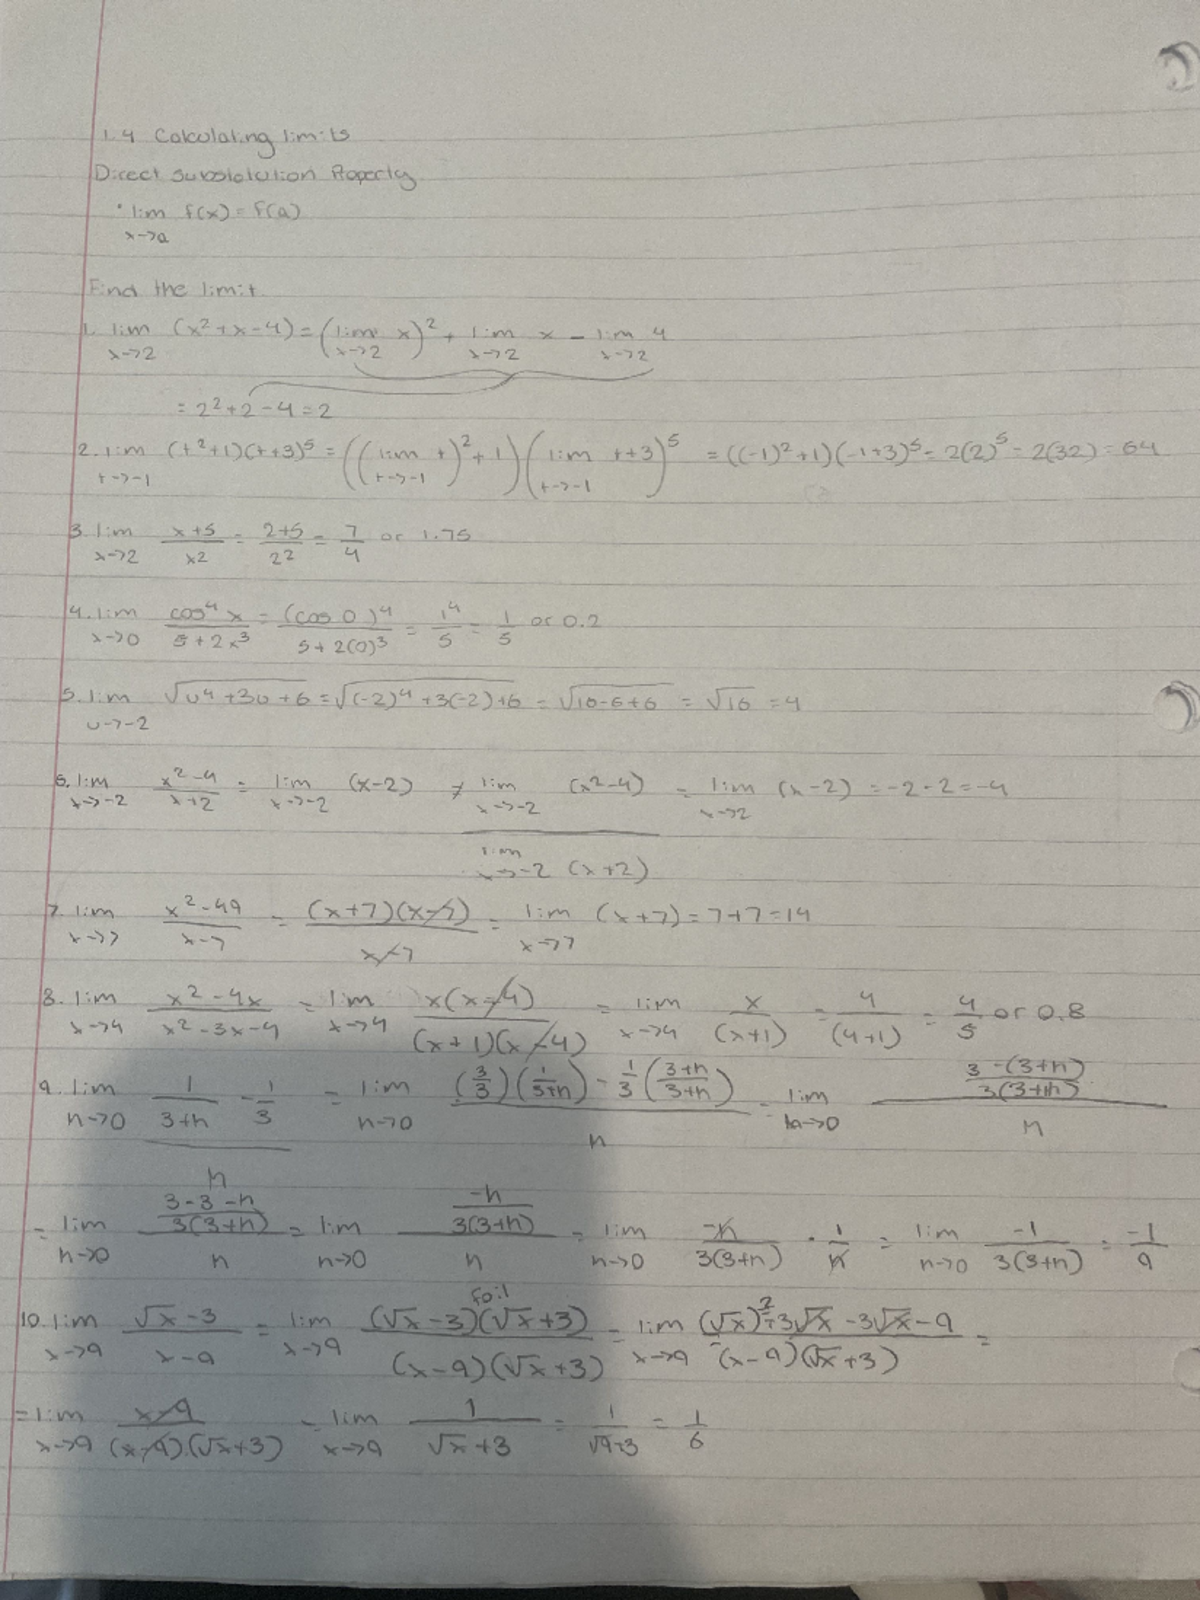 1.4 Calculating limits
Direct Substitution Property
• lim x→a f(x) = f(a)
Find the limit.
1. lim x→2 (x²+x−4) = (lim x→2 x)² + lim x→2 x − lim x→2 4
= 2²+2−4=2
2. lim t→-1 (t²+1)(t+3)⁵ = ((lim t→-1 t)²+1)(lim t→-1 t+3)⁵ = ((-1)²+1)(-1+3)⁵ = 2(2)⁵ = 2(32) = 64
3. lim x→2 x+5/x2 = 2+5/2² = 7/4 or 1.75
4. lim x→0 cos⁴x/5+2x³ = (cos 0)⁴/5+2(0)³ = 1⁴/5 = 1/5 or 0.2
5. lim u→-2 √u⁴+3u+6 = √(-2)⁴+3(-2)+6 = √16-6+6 = √16 = 4
6. lim x→-2 x²-4/x+2 = lim x→-2 (x-2) ≠ lim x→-2 (x²-4)/lim x→-2 (x+2) = lim x→2 (x-2) = -2-2 = -4
7. lim x→7 x²-49/x-7 = (x+7)(x-7)/x-7 = lim x→7 (x+7) = 7+7 = 14
8. lim x→4 x²-4x/x²-3x-4 = lim x→4 x(x-4)/(x+1)(x-4) = lim x→4 x/(x+1) = 4/(4+1) = 4/5 or 0.8
9. lim h→0 1/3+h - 1/3/h = lim h→0 (3/3)(1/3+h) - 1/3(3+h/3+h)/h = lim h→0 3-(3+h)/3(3+h)/h
= lim h→0 3-3-h/3(3+h)/h = lim h→0 -h/3(3+h)/h = lim h→0 -h/3(3+h) · 1/h = lim h→0 -1/3(3+h) = -1/9
foil
10. lim x→9 √x-3/x-9 = lim x→9 (√x-3)(√x+3)/(x-9)(√x+3) = lim x→9 (√x)²+3√x-3√x-9/(x-9)(√x+3) =
= lim x→9 x-9/(x-9)(√x+3) = lim x→9 1/√x+3 = 1/√9+3 = 1/6